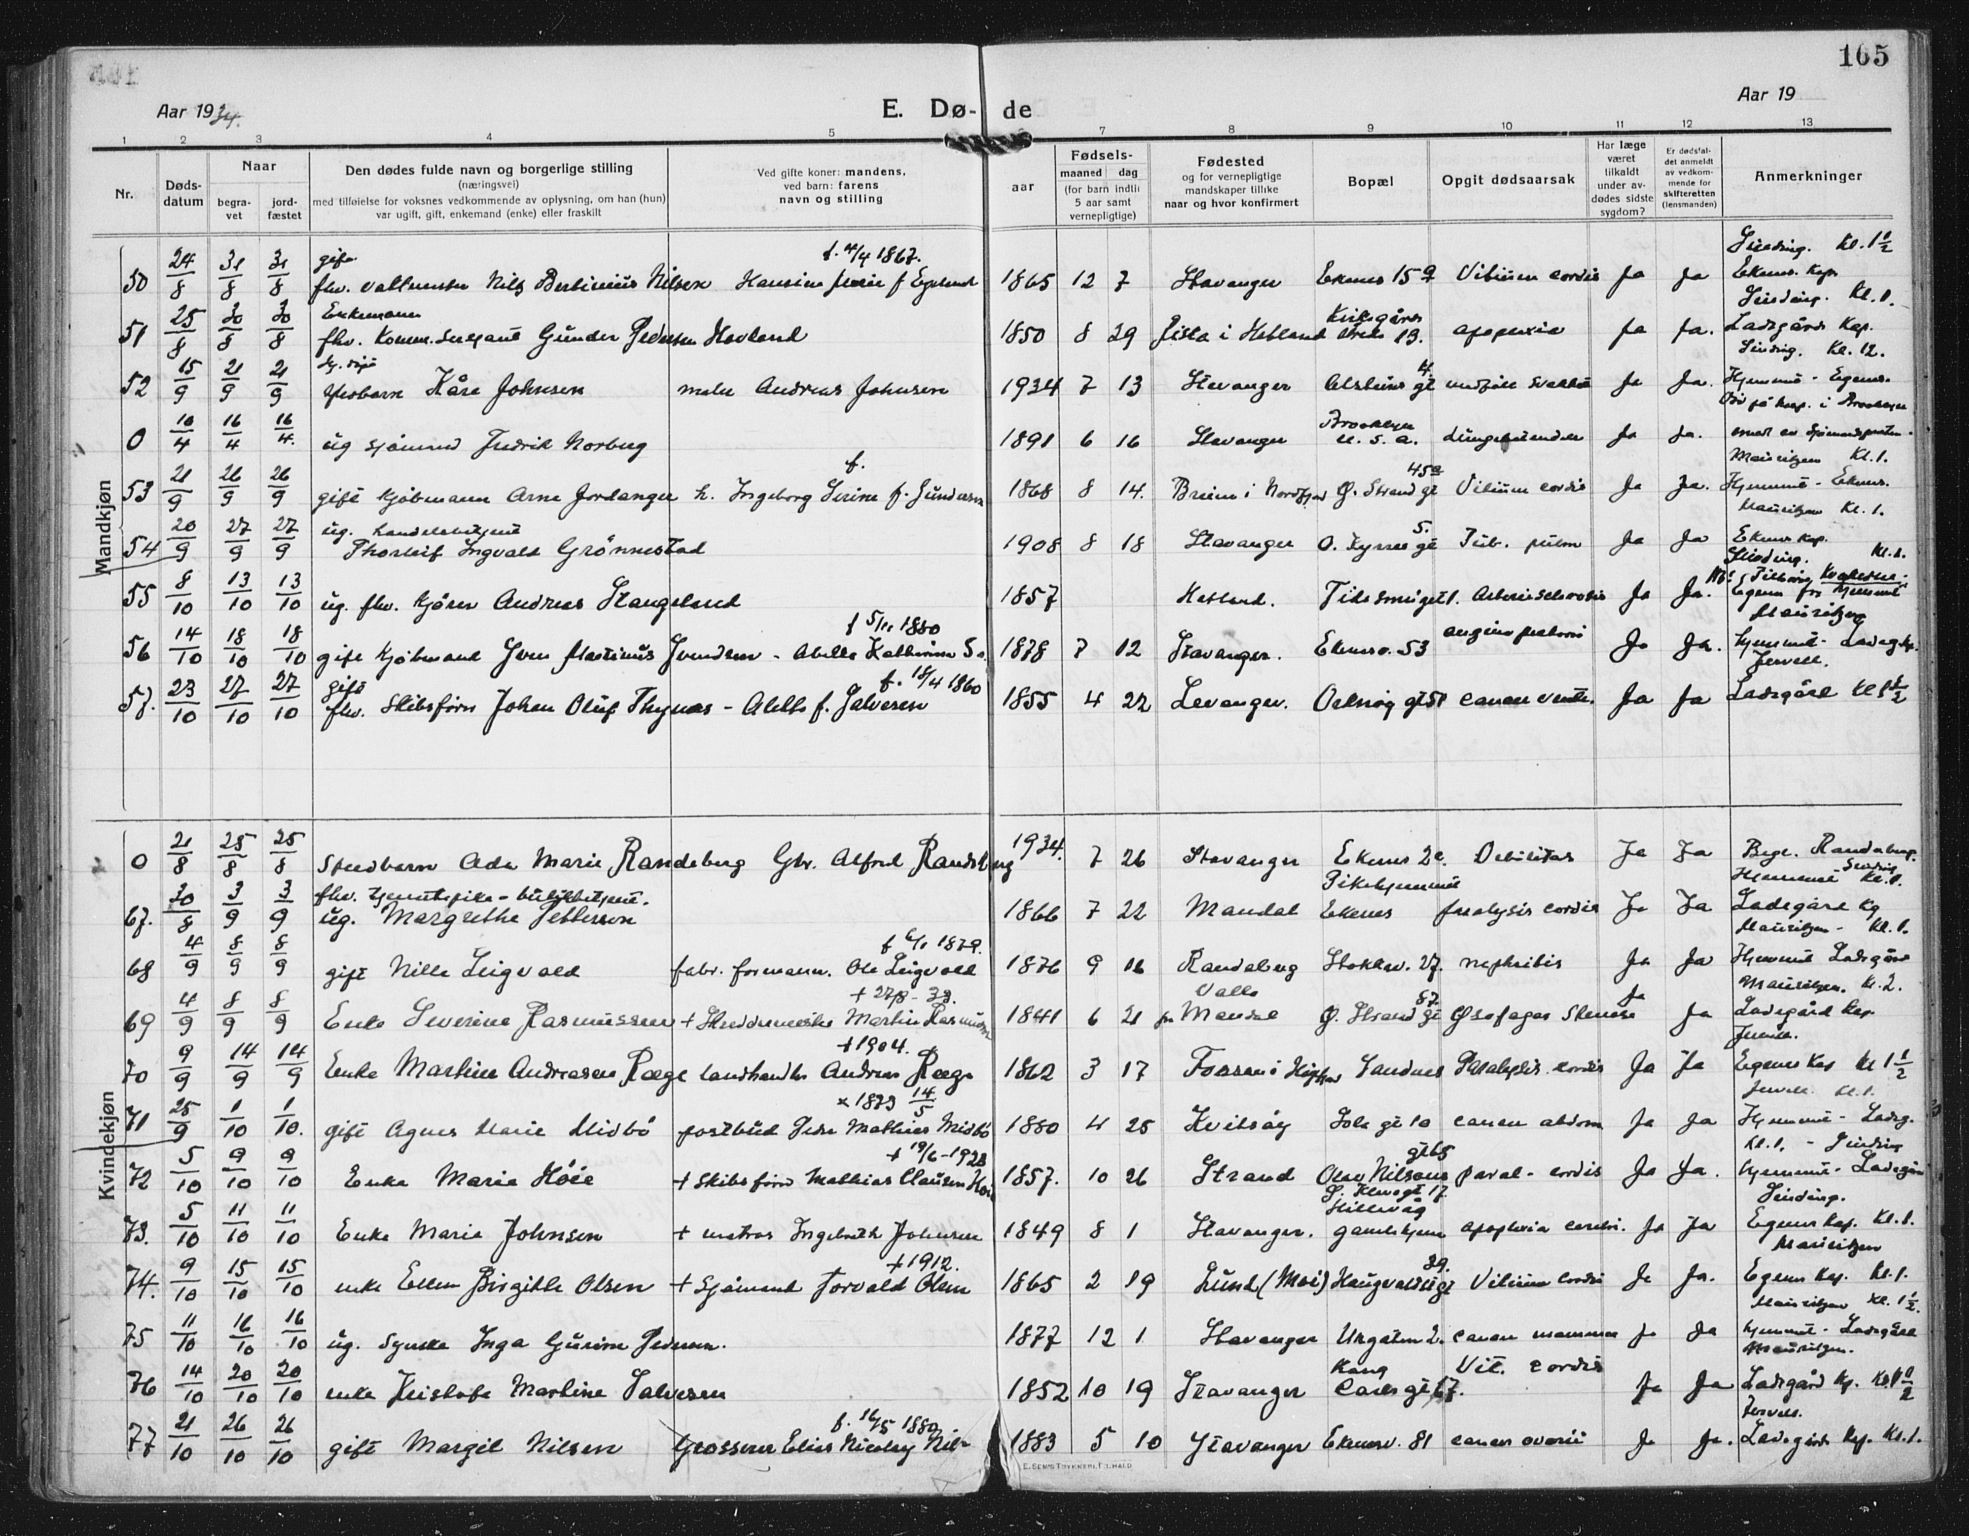 165
Aar 1934.
E. Dø- de
Aar 19
1 2 3 4 5 7 8 9 10 11 12 13
Nr.
Døds-
datum
Naar
begra-
vet
jord-
fæstet
Den dødes fulde navn og borgerlige stilling
(næringsvei)
med tilføielse for voksnes vedkommende av oplysning, om han (hun)
var ugift, gift, enkemand (enke) eller fraskilt
Ved gifte koner: mandens,
ved barn: farens
navn og stilling
Fødsels-
aar
maaned dag
(for barn indtil
5 aar samt
vernepligtige)
Fødested
og for vernepligtige
mandskaper tillike
naar og hvor konfirmert
Bopæl
Opgit dødsaarsak
Har læge
været
tilkaldt
under av-
dødes sidste
sygdom?
Er dødsfal-
det anmeldt
av vedkom-
mende for
skifteretten
(lensmanden)
Anmerkninger
Mandkjøn
gift f. 4/4 1867. Sinding. Kl. 1 1/2
50 24/8 31/8 31/8 fhv. Nils Bertinius Nilsen Hansine f Egelund 1865 12 7 Stavanger Ekenes 15 Vitium cordis Ja Ja Ekenes. Kap.
Enkemann Sinding. Kl. 1.
51 25/8 30/8 30/8 fhv. Komm. sergant Gunder Pedersen Hovland 1850 8 29 i Hetland 19. apoplexia Ja Ja. Ladegård Kap.
Sinding. Kl. 12.
52 15/9 21/9 21/9 Kåre Johnsen maler Andreas Johnsen 1934 7 13 Stavanger gt 4. medfødt svakhet Ja Ja. Hjemmet - Egenes.
Død på hosp. i Brooklyn
0 10/4 16/4 16/4. ug sjømand Fredrik Norberg 1891 6 16 Stavanger Brooklyn U. S. A. Lungebetendelse Ja Ja.
f. Mauritzen Kl. 1.
53 21/9 26/9 26/9 gift kjøbmann Arne Jordanger h. Ingeborg Serine f. Gundersen 1868 8 14. Breim i Nordfjord Ø. Strand gt 45a Vitium cordis Ja Ja. Hjemmet - Ekenes.
ug. handelsbetjent Mauritzen Kl. 1.
54 20/9 27/9 27/9 Thorleif Ingvald Grønnestad 1908 8 18 Stavanger O. Kyrres gt 5. Tub. pulm Ja Ja Ekenes Kap.
Sinding. Kl. 1.
55 8/10 13/10 13/10 ug. fhv. kjører Andreas Stangeland 1857 Hetland. Tidesmuget 1. Arteriosclerosis Ja Ja. Egenes fra Hjemmet
f 5/11 1880 Mauritzen
56 14/10 18/10 18/10 gift kjøbmand Sven Martinus Svendsen - Abella Kathrine S. 1878 7 12 Stavanger. Ekenesv. 53 angina pectoris Ja Ja. Hjemmet - Ladeg. Kap.
gift f. 18/4 1860 Jervell.
57. 23/10 27/10 27/10 fhv. Skibsfører Johan Oluf Thynæs - Aleth f. Salvesen 1855 4 22 Levanger. gt 51 cancer ventr. Ja Ja Ladegård Kl 1 1/2
Kvindekjøn
0 21/8 25/8 25/8 Spedbarn Ada Marie Randeberg Gbr. Alfred Randeberg 1934. 7 26 Stavanger Ekenes 2c. Debilitas Ja Ja Begr. Randaberg.
fhv. tjenestepike - butikkbetjent. Pikehjemmet Sinding Hjemmet Kl. 1.
67. 30/8 3/9 3/9 ug. Margrethe Pettersen 1866 7 22 Mandal Ekenes paralysis cordis Ja Ja Ladegård Kp
f 6/1 1879. Mauritzen - Kl. 1.
68 4/9 8/9 8/9 gift Nille Leigvold fabr. formann. Ole Leigvold 1876 9 16 Randaberg Stokkav. 27. nephritis Ja Ja Hjemmet Ladegård
+ 27/8 - 33. Valle Mauritzen. Kl. 2.
69 4/9 8/9 8/9 Enke Severine Rasmussen + Skreddermester Martin Rasmussen 1841 6 21 pr Mandal Ø. Strand gt 87. Øsofagus Stenose Ja Ja Ladegård Kap.
+ 1904. Jervell.
70 9/9 14/9 14/9 Enke Martine Andreasen Ræge landhandler Andreas Ræge 1862 3 17 Fossan i Høgsfjord Sandnes Paralysis cordis Ja Ja Egenes Kap Kl 1 1/2
* 1873 14/5 Jervell. Kl. 1.
71 25/9 1/10 1/10. gift Agnes Marie Midbö postbud Peder Mathias Midbö 1880 4 25 Kvitsøy Sole gt 10 cancer abdom Ja Ja Hjemmet - Ladeg.
+ 19/6 - 1928 Kl. 1. - Sinding
72 5/10 9/10 9/10 Enke Marie Höie + Skibsfører Mathias Clausen Höie 1857. 10 26 Strand Olav Nilsons gt 65 paral - cordis Ja Ja. Hjemmet - Ladegård
Hillevåg Sinding.
73. 5/10 11/10 11/10 Enke Marie Johnsen + matros Ingebreth Johnsen 1849 8 1 Stavanger. gamlehjem apoplexia cerebri. Ja Ja Egenes Kap. Kl. 1.
+ 1912. Mauritzen
74. 9/10 15/10 15/10 enke Ellen Birgitte Olsen + Sjømand Torvald Olsen 1865 2 19 Lund (Moi) Haugvaldst. gt 39. Vitium cordis Ja Ja. Egenes Kap. Kl. 1.
Mauritzen Kl. 1 1/2.
75 11/10 16/10 16/10 ug. Syerske Inga Gurine Pedersen. 1877 12 1 Stavanger Ungatn 2. cancer mammae Ja Ja Hjemmet - Ladegård
Mauritzen.
76 14/10 20/10 20/10 enke Kristofa Martine Salvesen 1852 10 19 Stavanger Kong Carls gt 67. Vit. cordis Ja Ja Ladegård Kp. Kl 1 1/2
f. 16/5 1880 Jervell.
77 21/10 26/10 26/10 gift Margit Nilsen Grosserer Elias Nicolay Nils- 1883 5 10 Stavanger Ekenesv. 81 cancer ovarii Ja Ja. Ladegård Kap. Kl. 1.